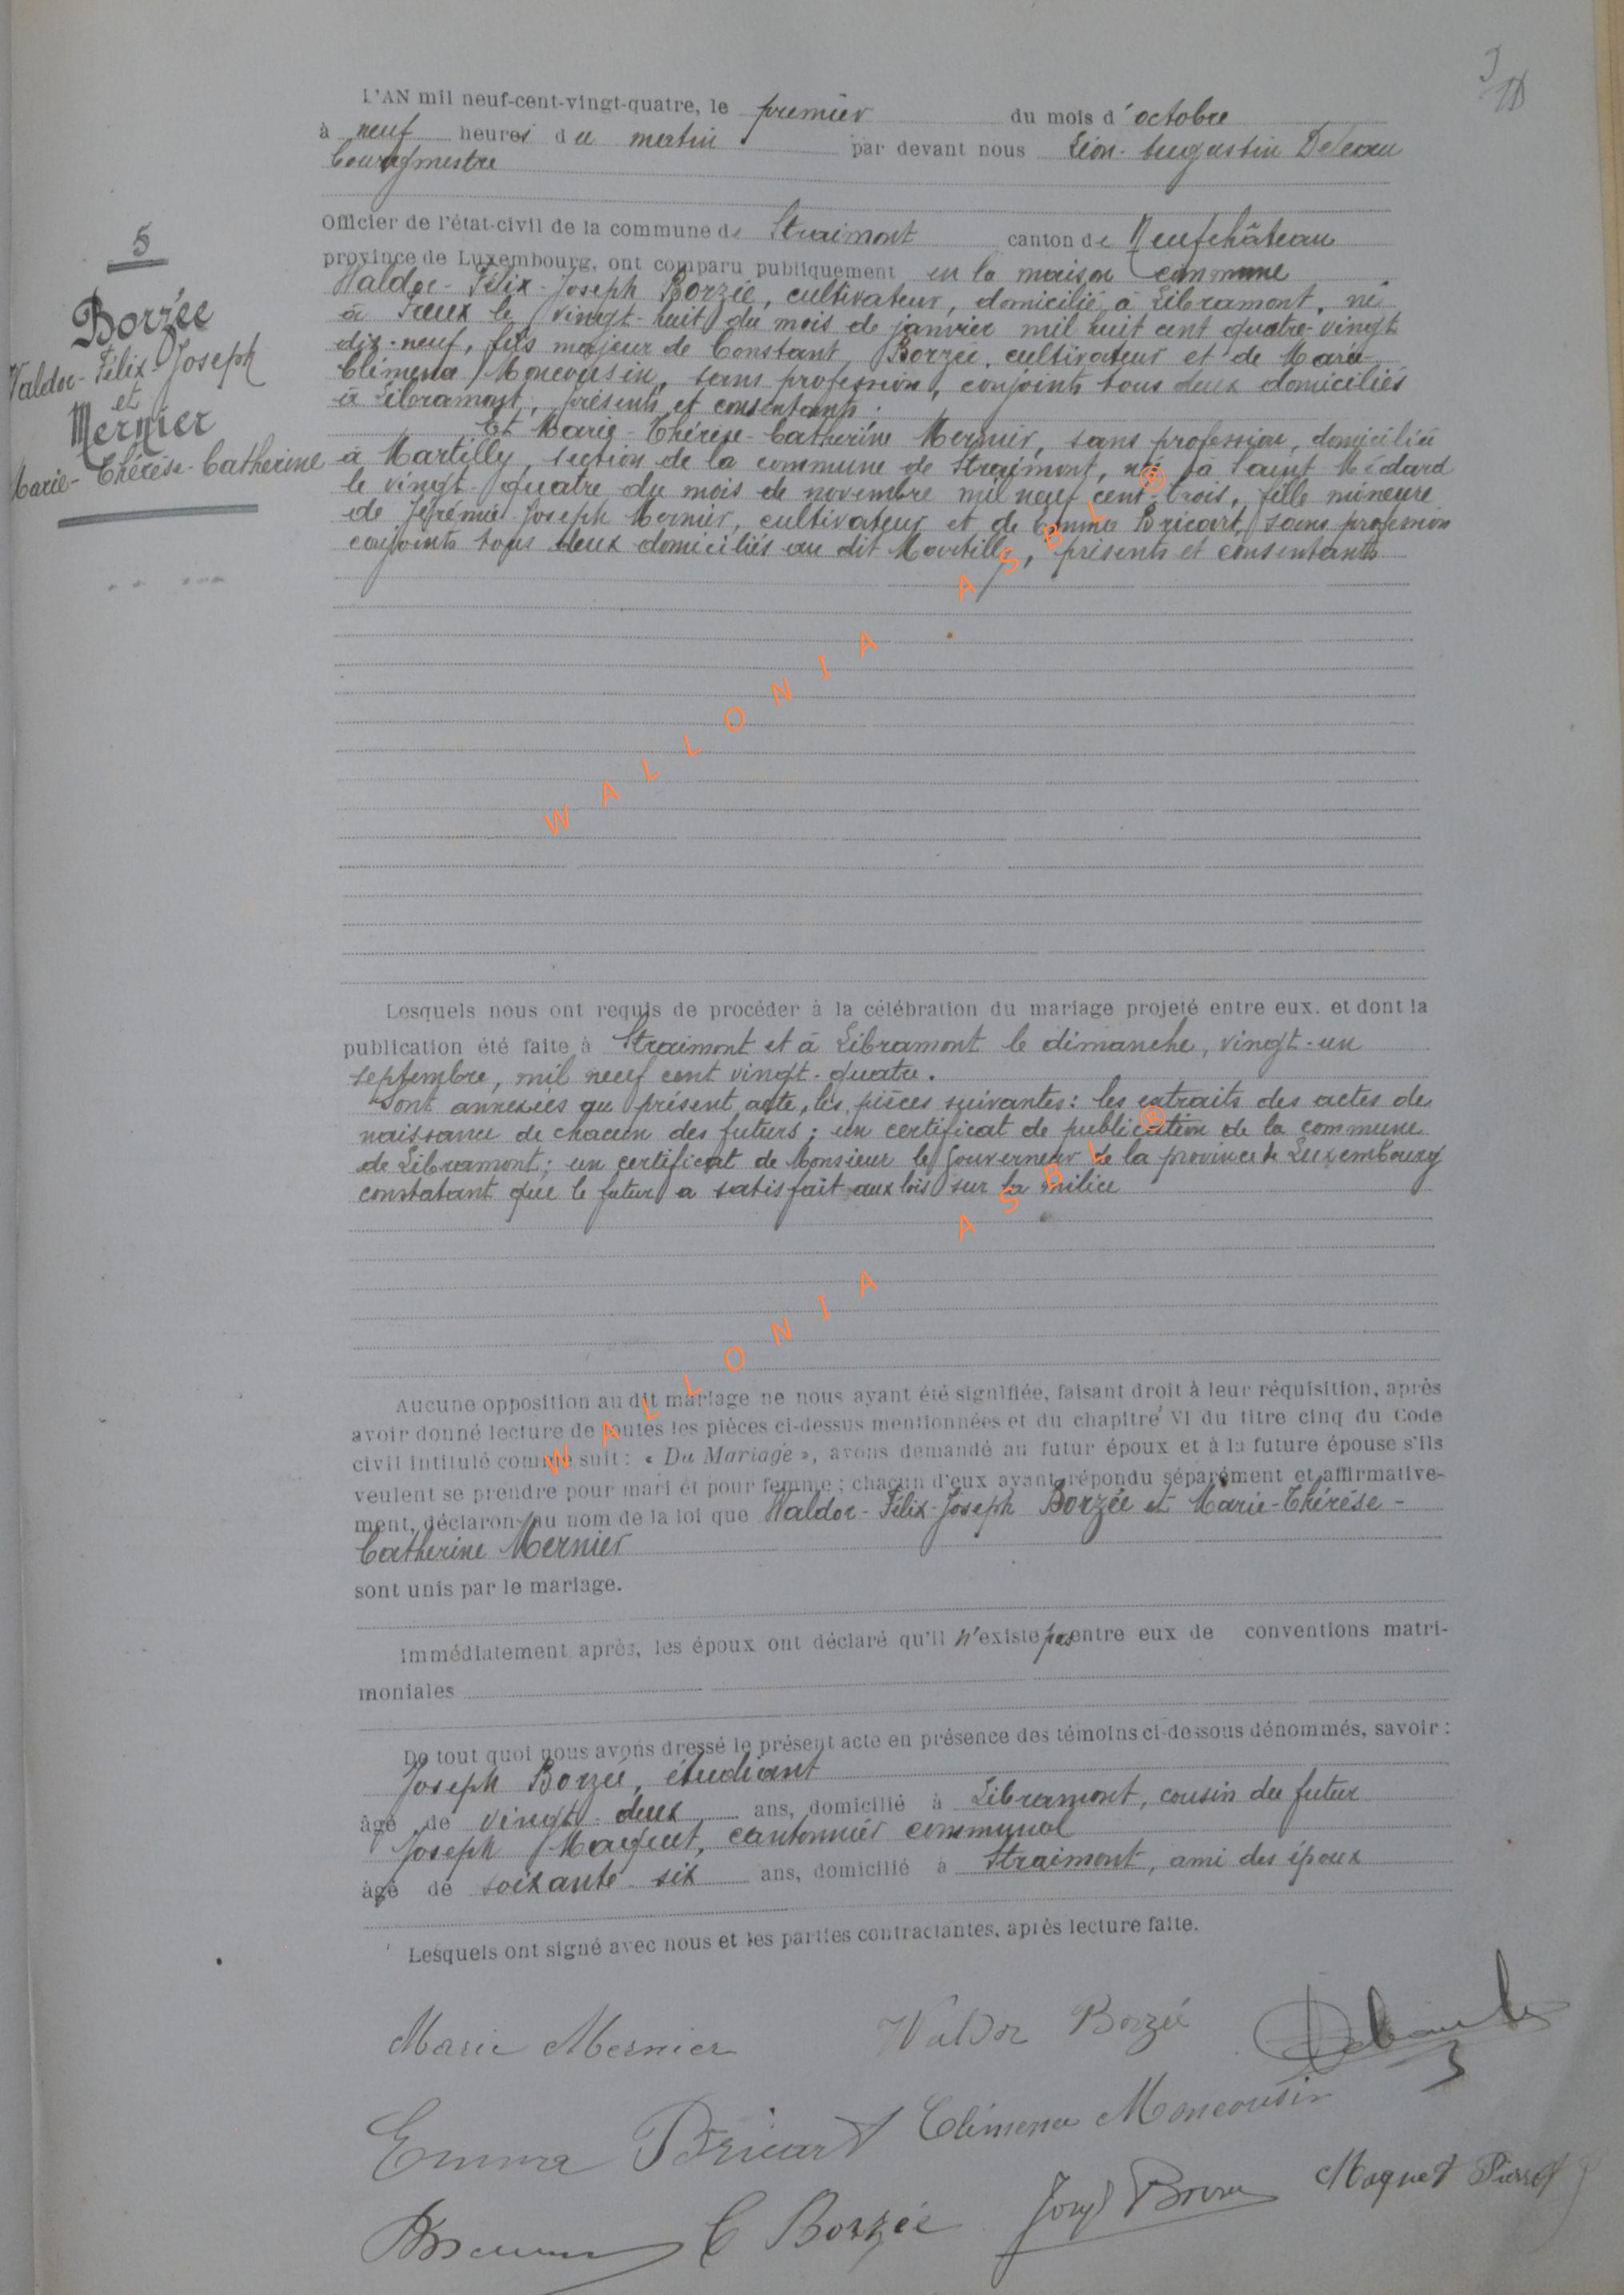 5
Borzée
Valdor-Félix-Joseph
et
Mernier
Marie-Thérèse-Catherine
L'AN mil neuf-cent-vingt-quatre, le premier du mois d'octobre
à neuf heures du matin par devant nous Léon-Augustin
bourgmestre
Officier de l'état-civil de la commune de Straimont canton de Neufchâteau
province de Luxembourg, ont comparu publiquement en la maison commune
Waldor-Félix-Joseph Borzée, cultivateur, domicilié à Libramont, né
à le vingt-huit du mois de janvier mil huit cent quatre-vingt
dix-neuf, fils majeur de Constant Borzée, cultivateur et de Marie
Clémena Moncousin, sans profession, conjoints tous deux domiciliés
à Libramont, présents et consentants;
Et Marie-Thérèse-Catherine Mernier, sans profession, domiciliée
à Martilly, section de la commune de Straimont, née à Saint-Médard
le vingt-quatre du mois de novembre mil neuf cent trois, fille mineure
de Joseph Mernier, cultivateur et de Emma Bricart, sans profession
conjoints tous deux domiciliés au dit Martilly, présents et consentants
WALLONIA ASBL ®
Lesquels nous ont requis de procéder à la célébration du mariage projeté entre eux. et dont la
publication été faite à Straimont et à Libramont le dimanche, vingt-un
septembre, mil neuf cent vingt-quatre.
Sont annexées au présent acte, les pièces suivantes: les extraits des actes de
naissance de chacun des futurs; un certificat de publication de la commune
de Libramont; un certificat de Monsieur le Gouverneur de la province de Luxembourg
constatant que le futur a satisfait aux lois sur la milice
WALLONIA ASBL ®
Aucune opposition au dit mariage ne nous ayant été signifiée, faisant droit à leur réquisition, après
avoir donné lecture de toutes les pièces ci-dessus mentionnées et du chapitre VI du titre cinq du Code
civil intitulé comme suit : « Du Mariage », avons demandé au futur époux et à la future épouse s'ils
veulent se prendre pour mari et pour femme ; chacun d'eux ayant répondu séparément et affirmative-
ment, déclarons au nom de la loi que Waldor-Félix-Joseph Borzée et Marie-Thérèse-
Catherine Mernier
sont unis par le mariage.
Immédiatement après, les époux ont déclaré qu'il n'existe pas entre eux de conventions matri-
moniales
De tout quoi nous avons dressé le présent acte en présence des témoins ci-dessous dénommés, savoir :
Joseph Borzée, étudiant
âgé de vingt-deux ans, domicilié à Libramont, cousin du futur
Joseph Maquet, cantonnier communal
âgé de soixante-six ans, domicilié à Straimont, ami des époux
Lesquels ont signé avec nous et les parties contractantes, après lecture faite.
Marie Mernier Waldor Borzée
Emma Bricart Clémena Moncousin
C Borzée Maquet